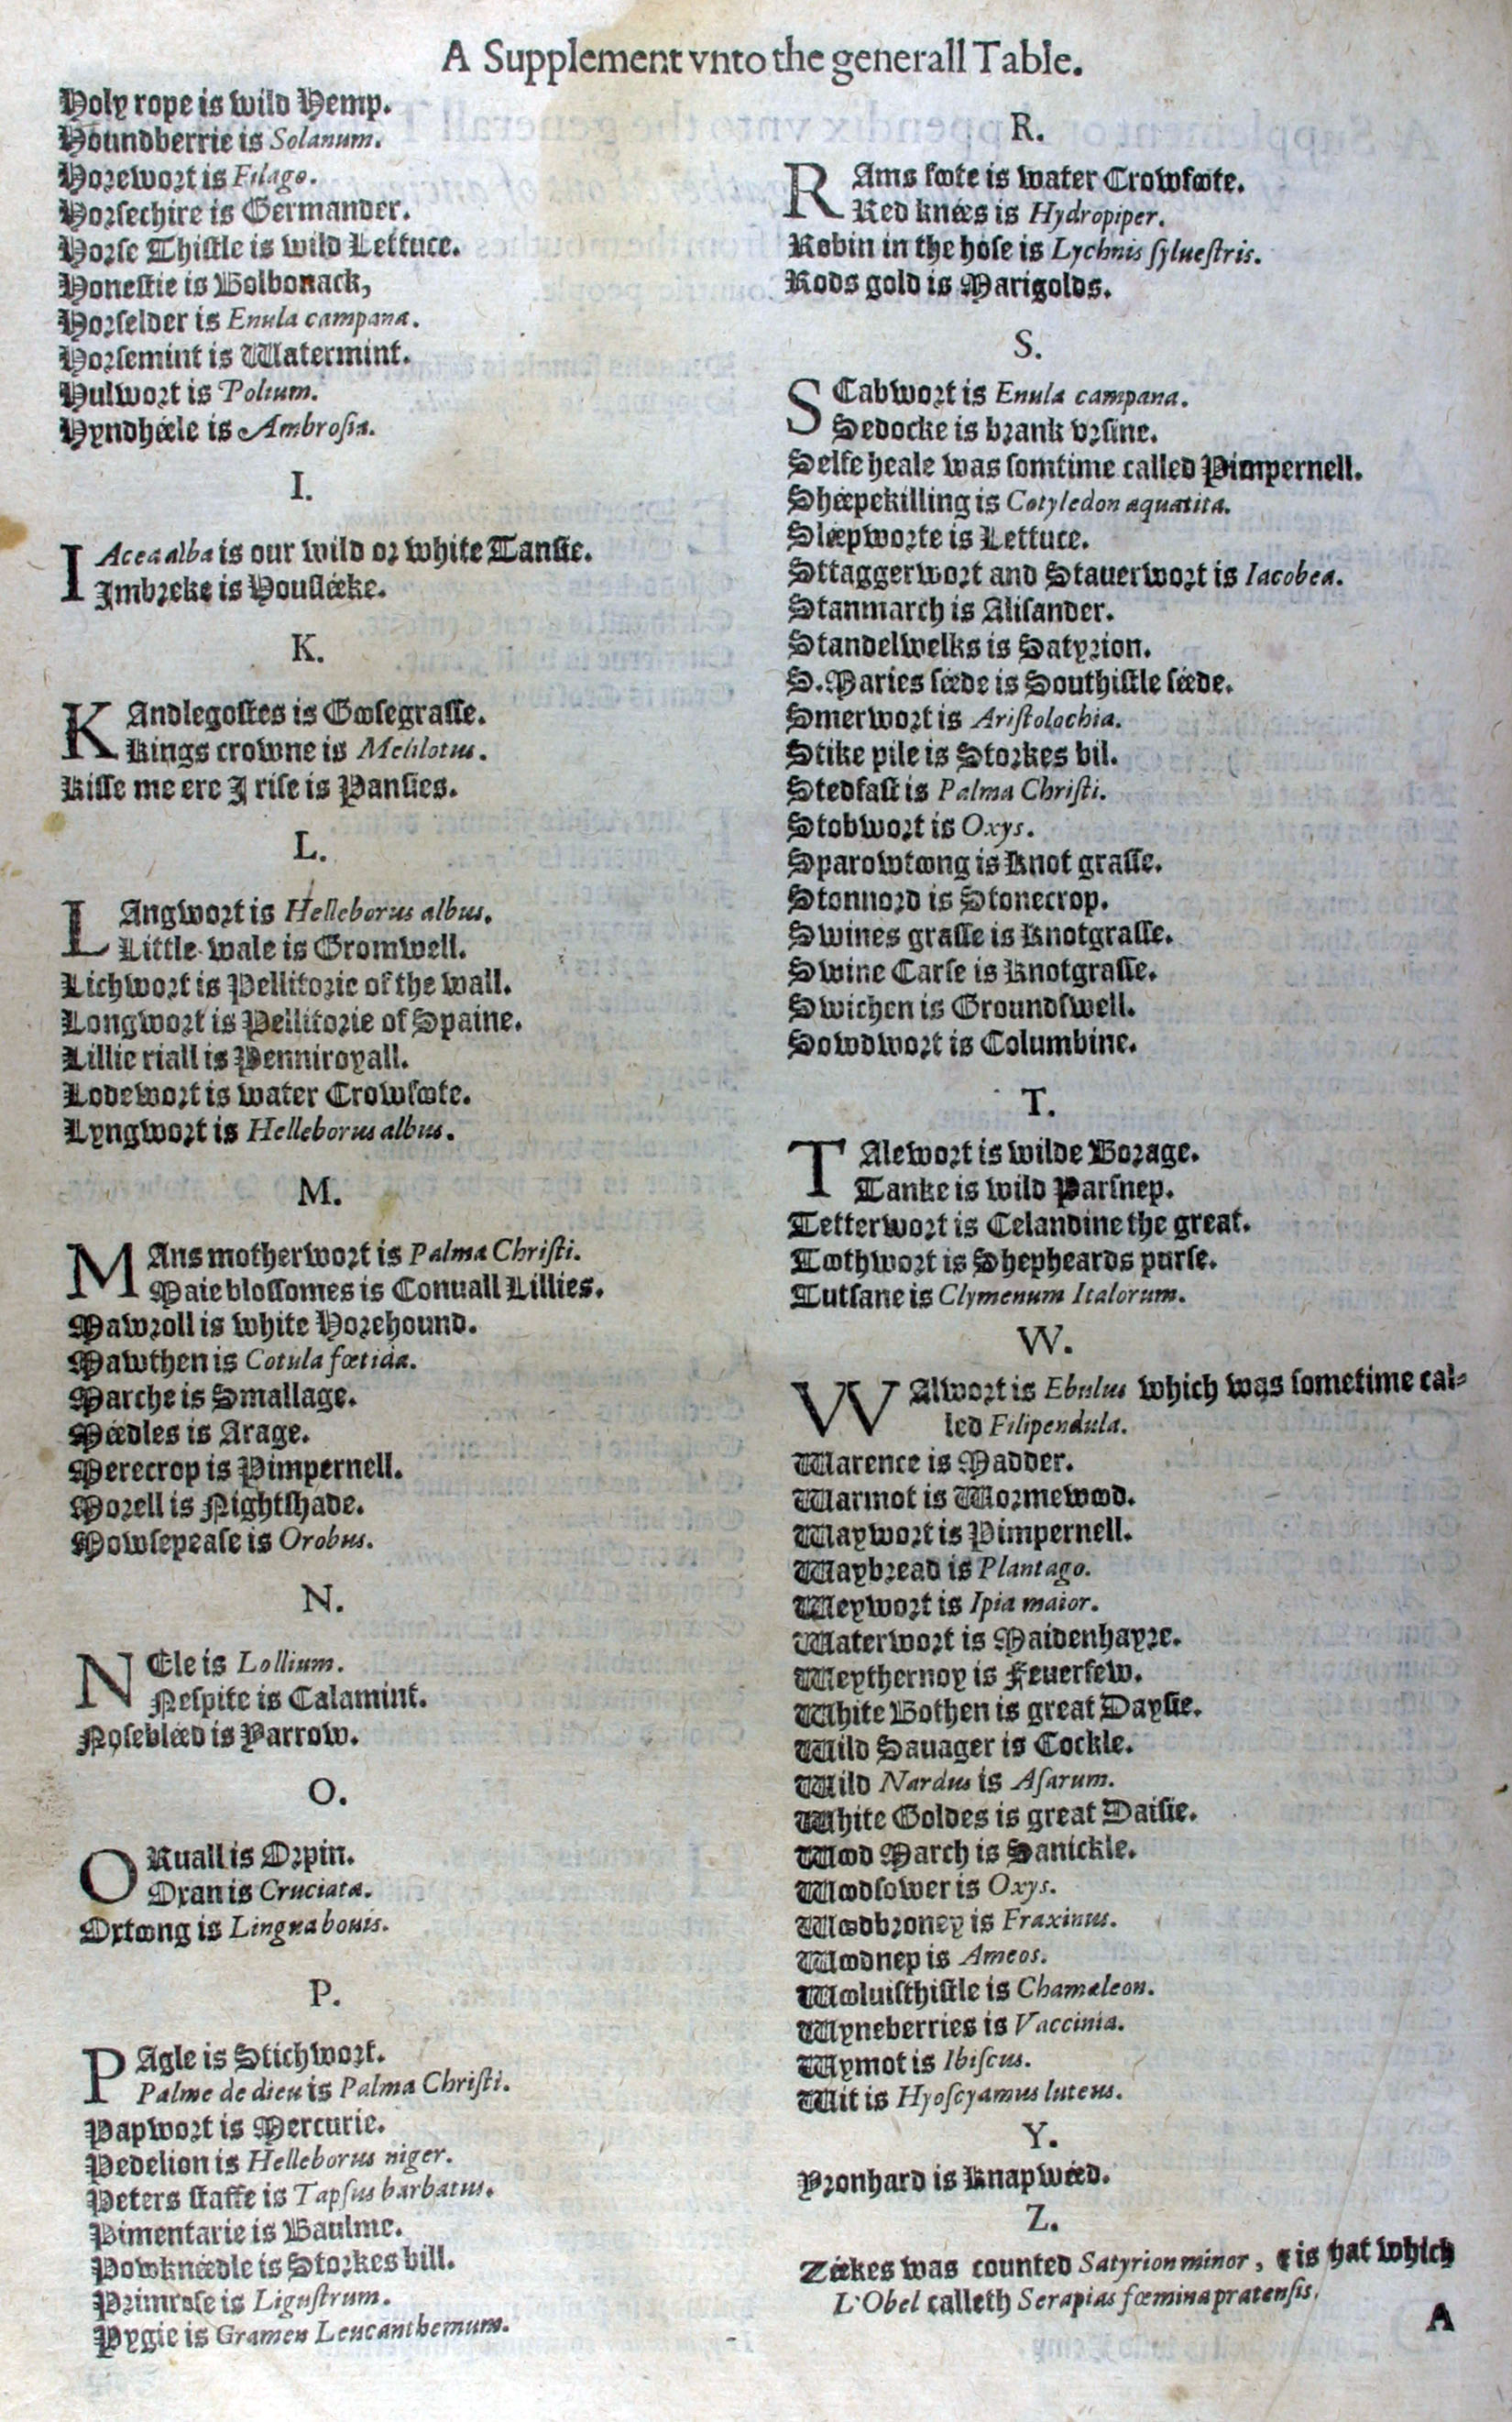 A Supplement vnto the generall Table.
Holy rope is wild Hemp.
Houndberrie is Solanum.
Horewort is Filago.
Horſechire is Germander.
Horſe Thiſtle is wild Lettuce.
Honeſtie is Bolbonack,
Horſelder is Enula campana.
Horſemint is Watermint.
Hulwort is Polium.
Hyndheele is Ambroſia.
I.
IAcea alba is our wild or white Tanſie.
Imbreke is Houſleeke.
K.
KAndlegoſtes is Gooſegraſſe.
Kings crowne is Melilotus.
Kiſſe me ere I riſe is Panſies.
L.
LAngwort is Helleborus albus.
Little wale is Gromwell.
Lichwort is Pellitorie of the wall.
Longwort is Pellitorie of Spaine.
Lillie riall is Penniroyall.
Lodewort is water Crowfoote.
Lyngwort is Helleborus albus.
M.
MAns motherwort is Palma Chriſti.
Maie bloſſomes is Conuall Lillies.
Mawroll is white Horehound.
Mawthen is Cotula fœtida.
Marche is Smallage.
Meedles is Arage.
Merecrop is Pimpernell.
Morell is Nightſhade.
Mowſepeaſe is Orobus.
N.
NEle is Lollium.
Neſpite is Calamint.
Noſebleed is Yarrow.
O.
ORuall is Orpin.
Oxan is Cruciata.
Oxtoong is Lingua bouis.
P.
PAgle is Stichwort.
Palme de dieu is Palma Chriſti.
Papwort is Mercurie.
Pedelion is Helleborus niger.
Peters ſtaffe is Tapſus barbatus.
Pimentarie is Baulme.
Powkneedle is Storkes bill.
Primroſe is Liguſtrum.
Pygie is Gramen Leucanthemum.
R.
RAms foote is water Crowfoote.
Red knees is Hydropiper.
Robin in the hoſe is Lychnis ſylueſtris.
Rods gold is Marigolds.
S.
SCabwort is Enula campana.
Sedocke is brank vrſine.
Selfe heale was ſomtime called Pimpernell.
Sheepekilling is Cotyledon aquatita.
Sleepworte is Lettuce.
Sttaggerwort and Stauerwort is Iacobea.
Stanmarch is Aliſander.
Standelwelks is Satyrion.
S. Maries ſeede is Southiſtle ſeede.
Smerwort is Ariſtolochia.
Stike pile is Storkes bil.
Stedfaſt is Palma Chriſti.
Stobwort is Oxys.
Sparowtoong is Knot graſſe.
Stonnord is Stonecrop.
Swines graſſe is Knotgraſſe.
Swine Carſe is Knotgraſſe.
Swichen is Groundſwell.
Sowdwort is Columbine.
T.
TAlewort is wilde Borage.
Tanke is wild Parſnep.
Tetterwort is Celandine the great.
Toothwort is Shepheards purſe.
Tutſane is Clymenum Italorum.
W.
WAlwort is Ebulus which was ſometime cal-
led Filipendula.
Warence is Madder.
Warmot is Wormewood.
Waywort is Pimpernell.
Waybread is Plantago.
Weywort is Ipia maior.
Waterwort is Maidenhayre.
Weythernoy is Feuerfew.
White Bothen is great Dayſie.
Wild Sauager is Cockle.
Wild Nardus is Aſarum.
White Goldes is great Daiſie.
Wood March is Sanickle.
Woodſower is Oxys.
Woodbroney is Fraxinus.
Woodnep is Ameos.
Wooluiſthiſtle is Chamæleon.
Wyneberries is Vaccinia.
Wymot is Ibiſcus.
Wit is Hyoſcyamus luteus.
Y.
Yronhard is Knapweed.
Z.
Zeekes was counted Satyrion minor, & is hat which
L'Obel calleth Serapias fœmina pratenſis.
A